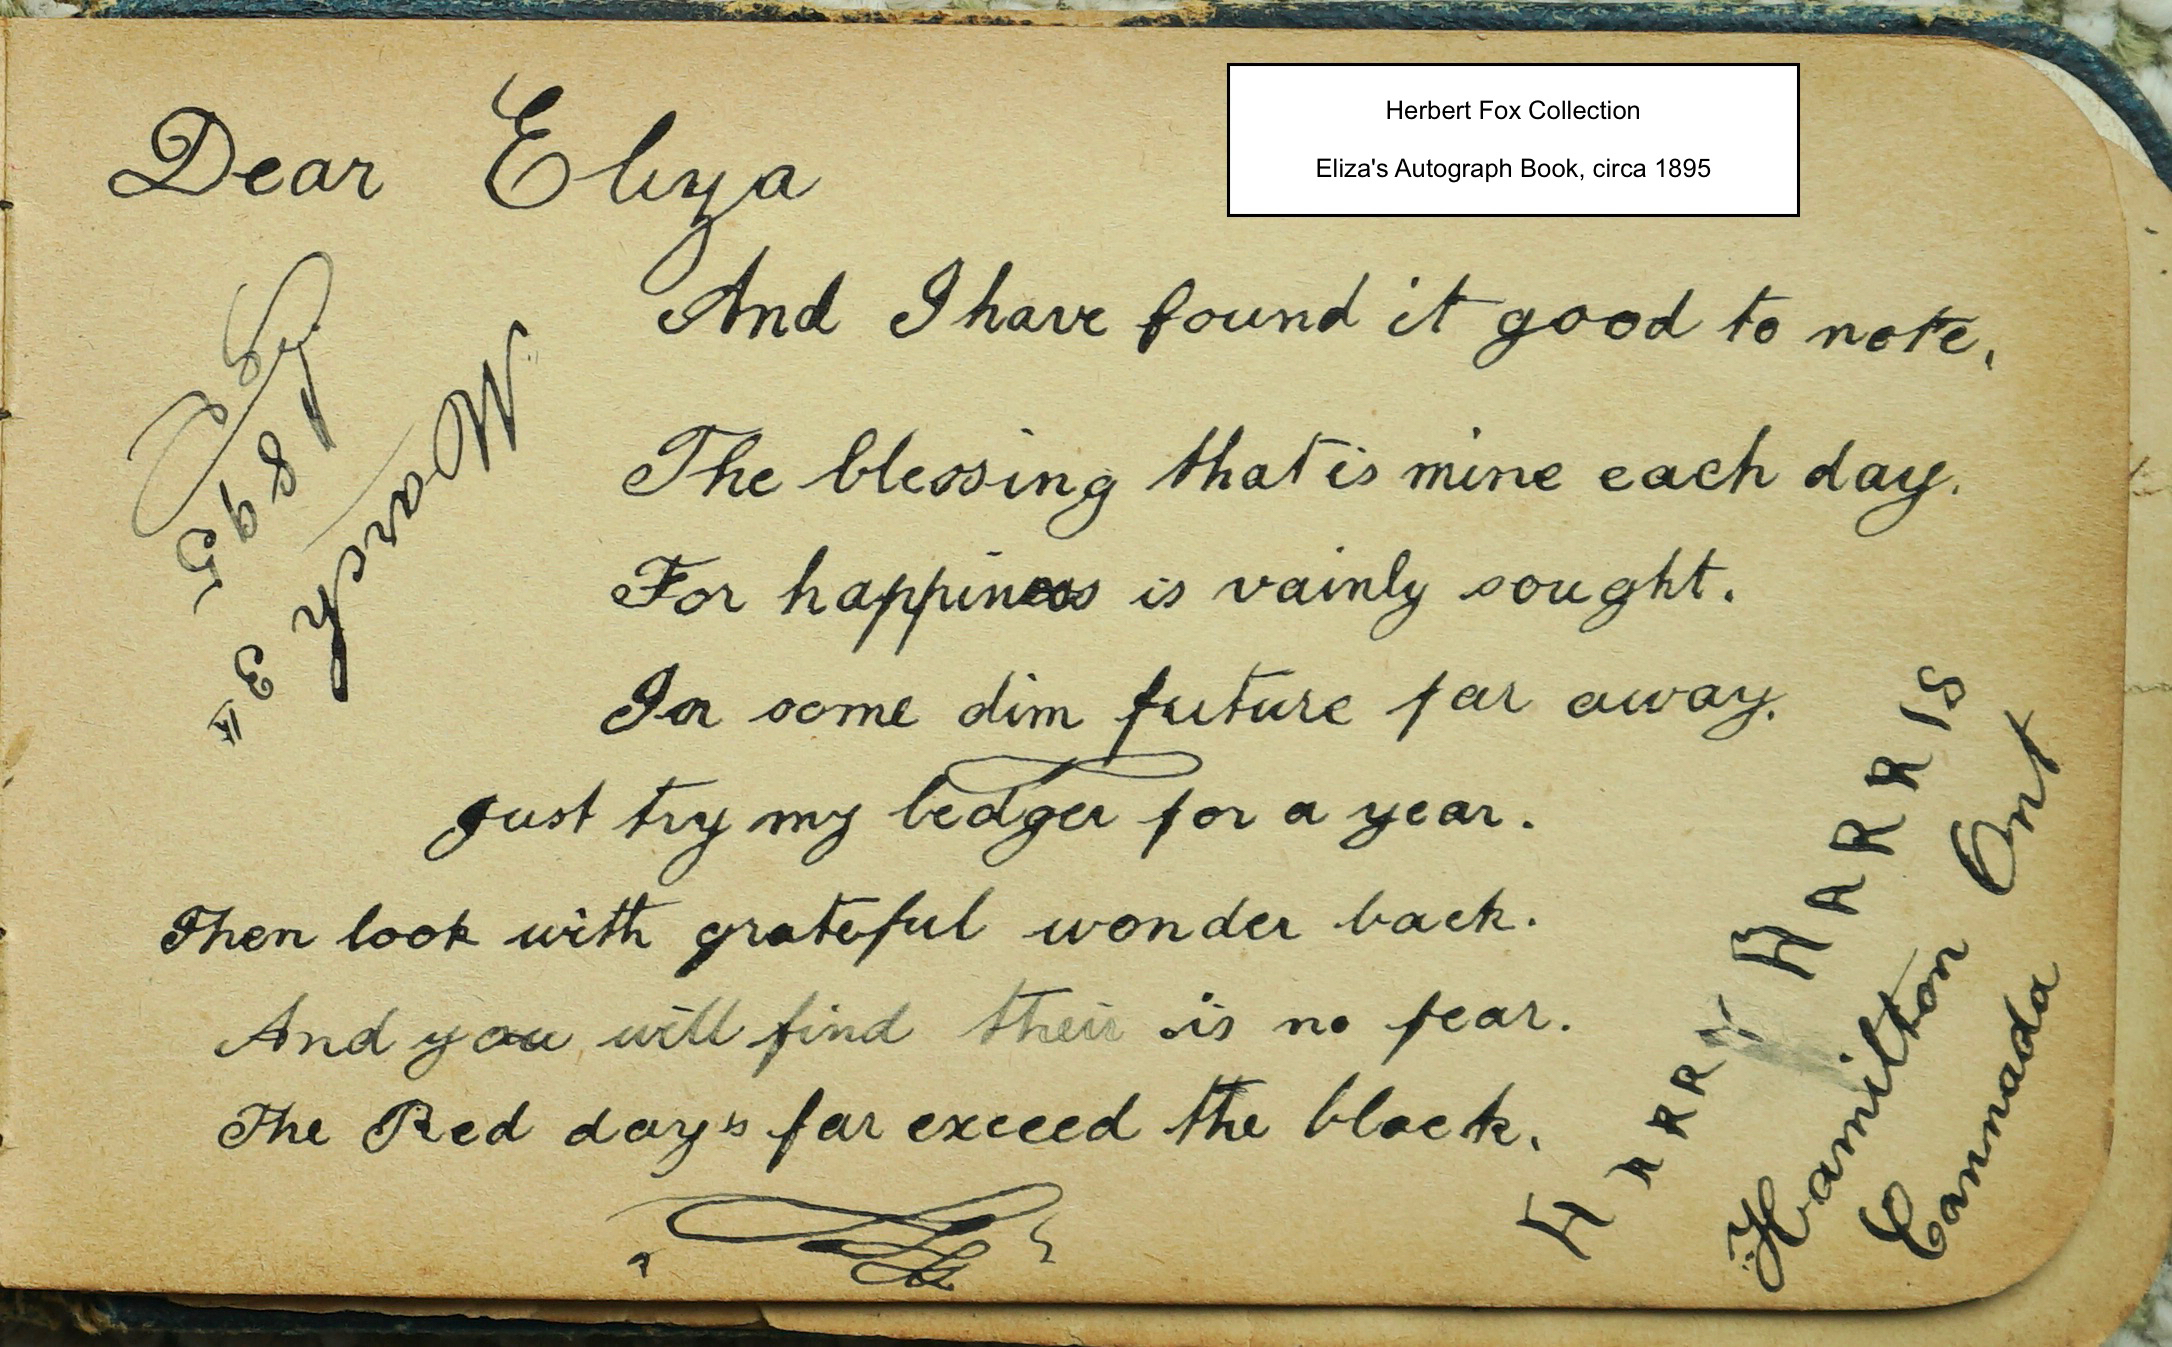 Herbert Fox Collection
Eliza's Autograph Book, circa 1895
Dear Eliza
And I have found it good to note,
The blessing that is mine each day.
For happiness is vainly sought.
In some dim future far away.
Just try my ledger for a year.
Then look with grateful wonder back.
And you will find their is no fear.
The Red days far exceed the black.
March 3
1895
HARRY HARRIS
Hamilton Ont
Cannada